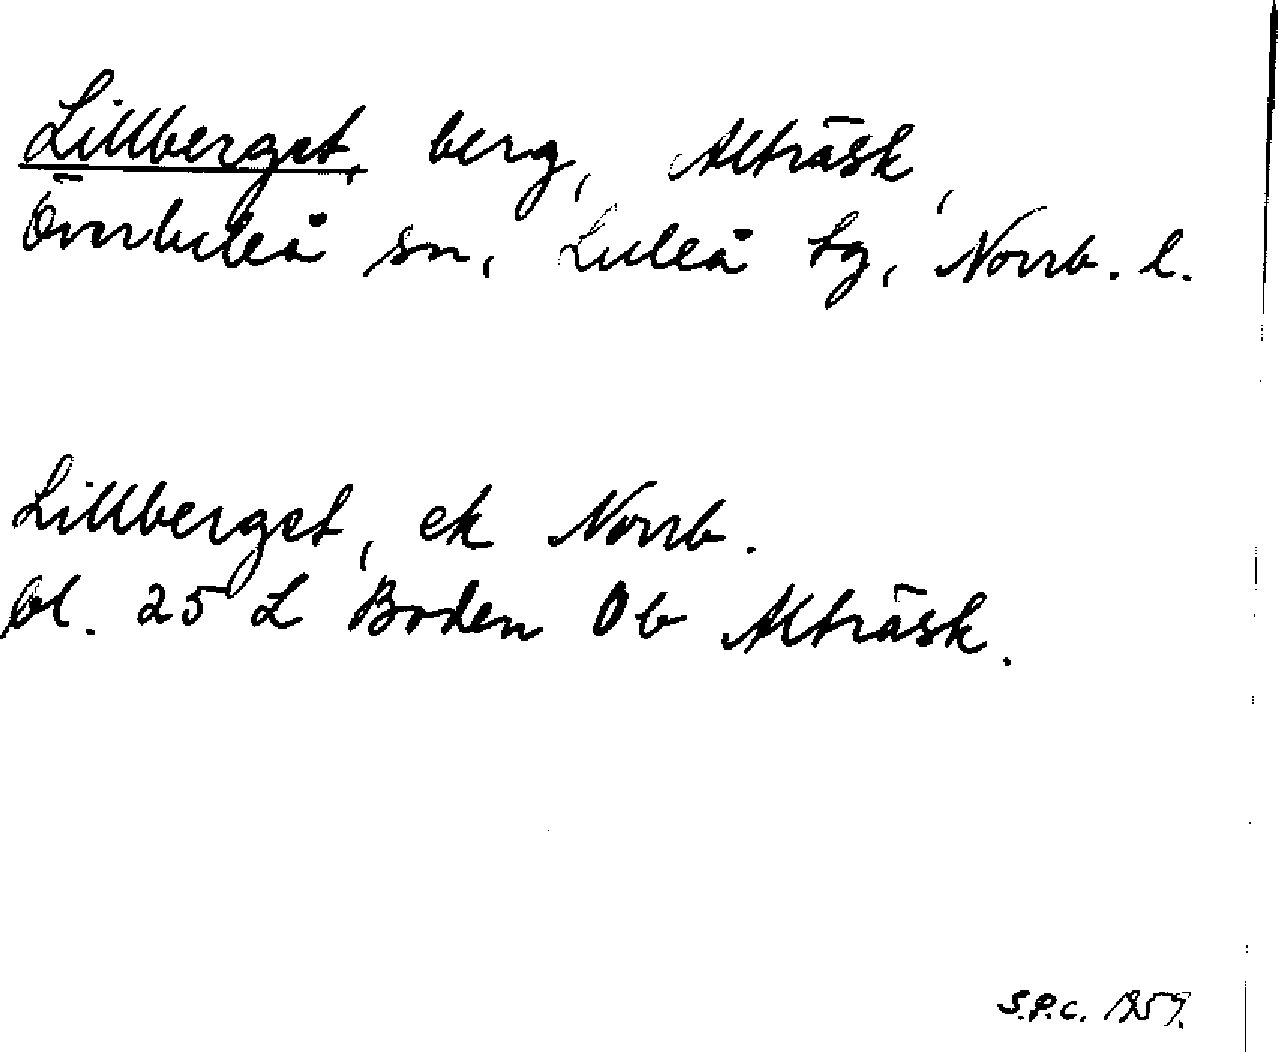 Lillberget, berg, Alträsk,
Överluleå sn, Luleå tg, Norrb. l.
Lillberget, ek Norrb.
bl. 25 L Boden Ob Alträsk.
S.P.C. 1957.